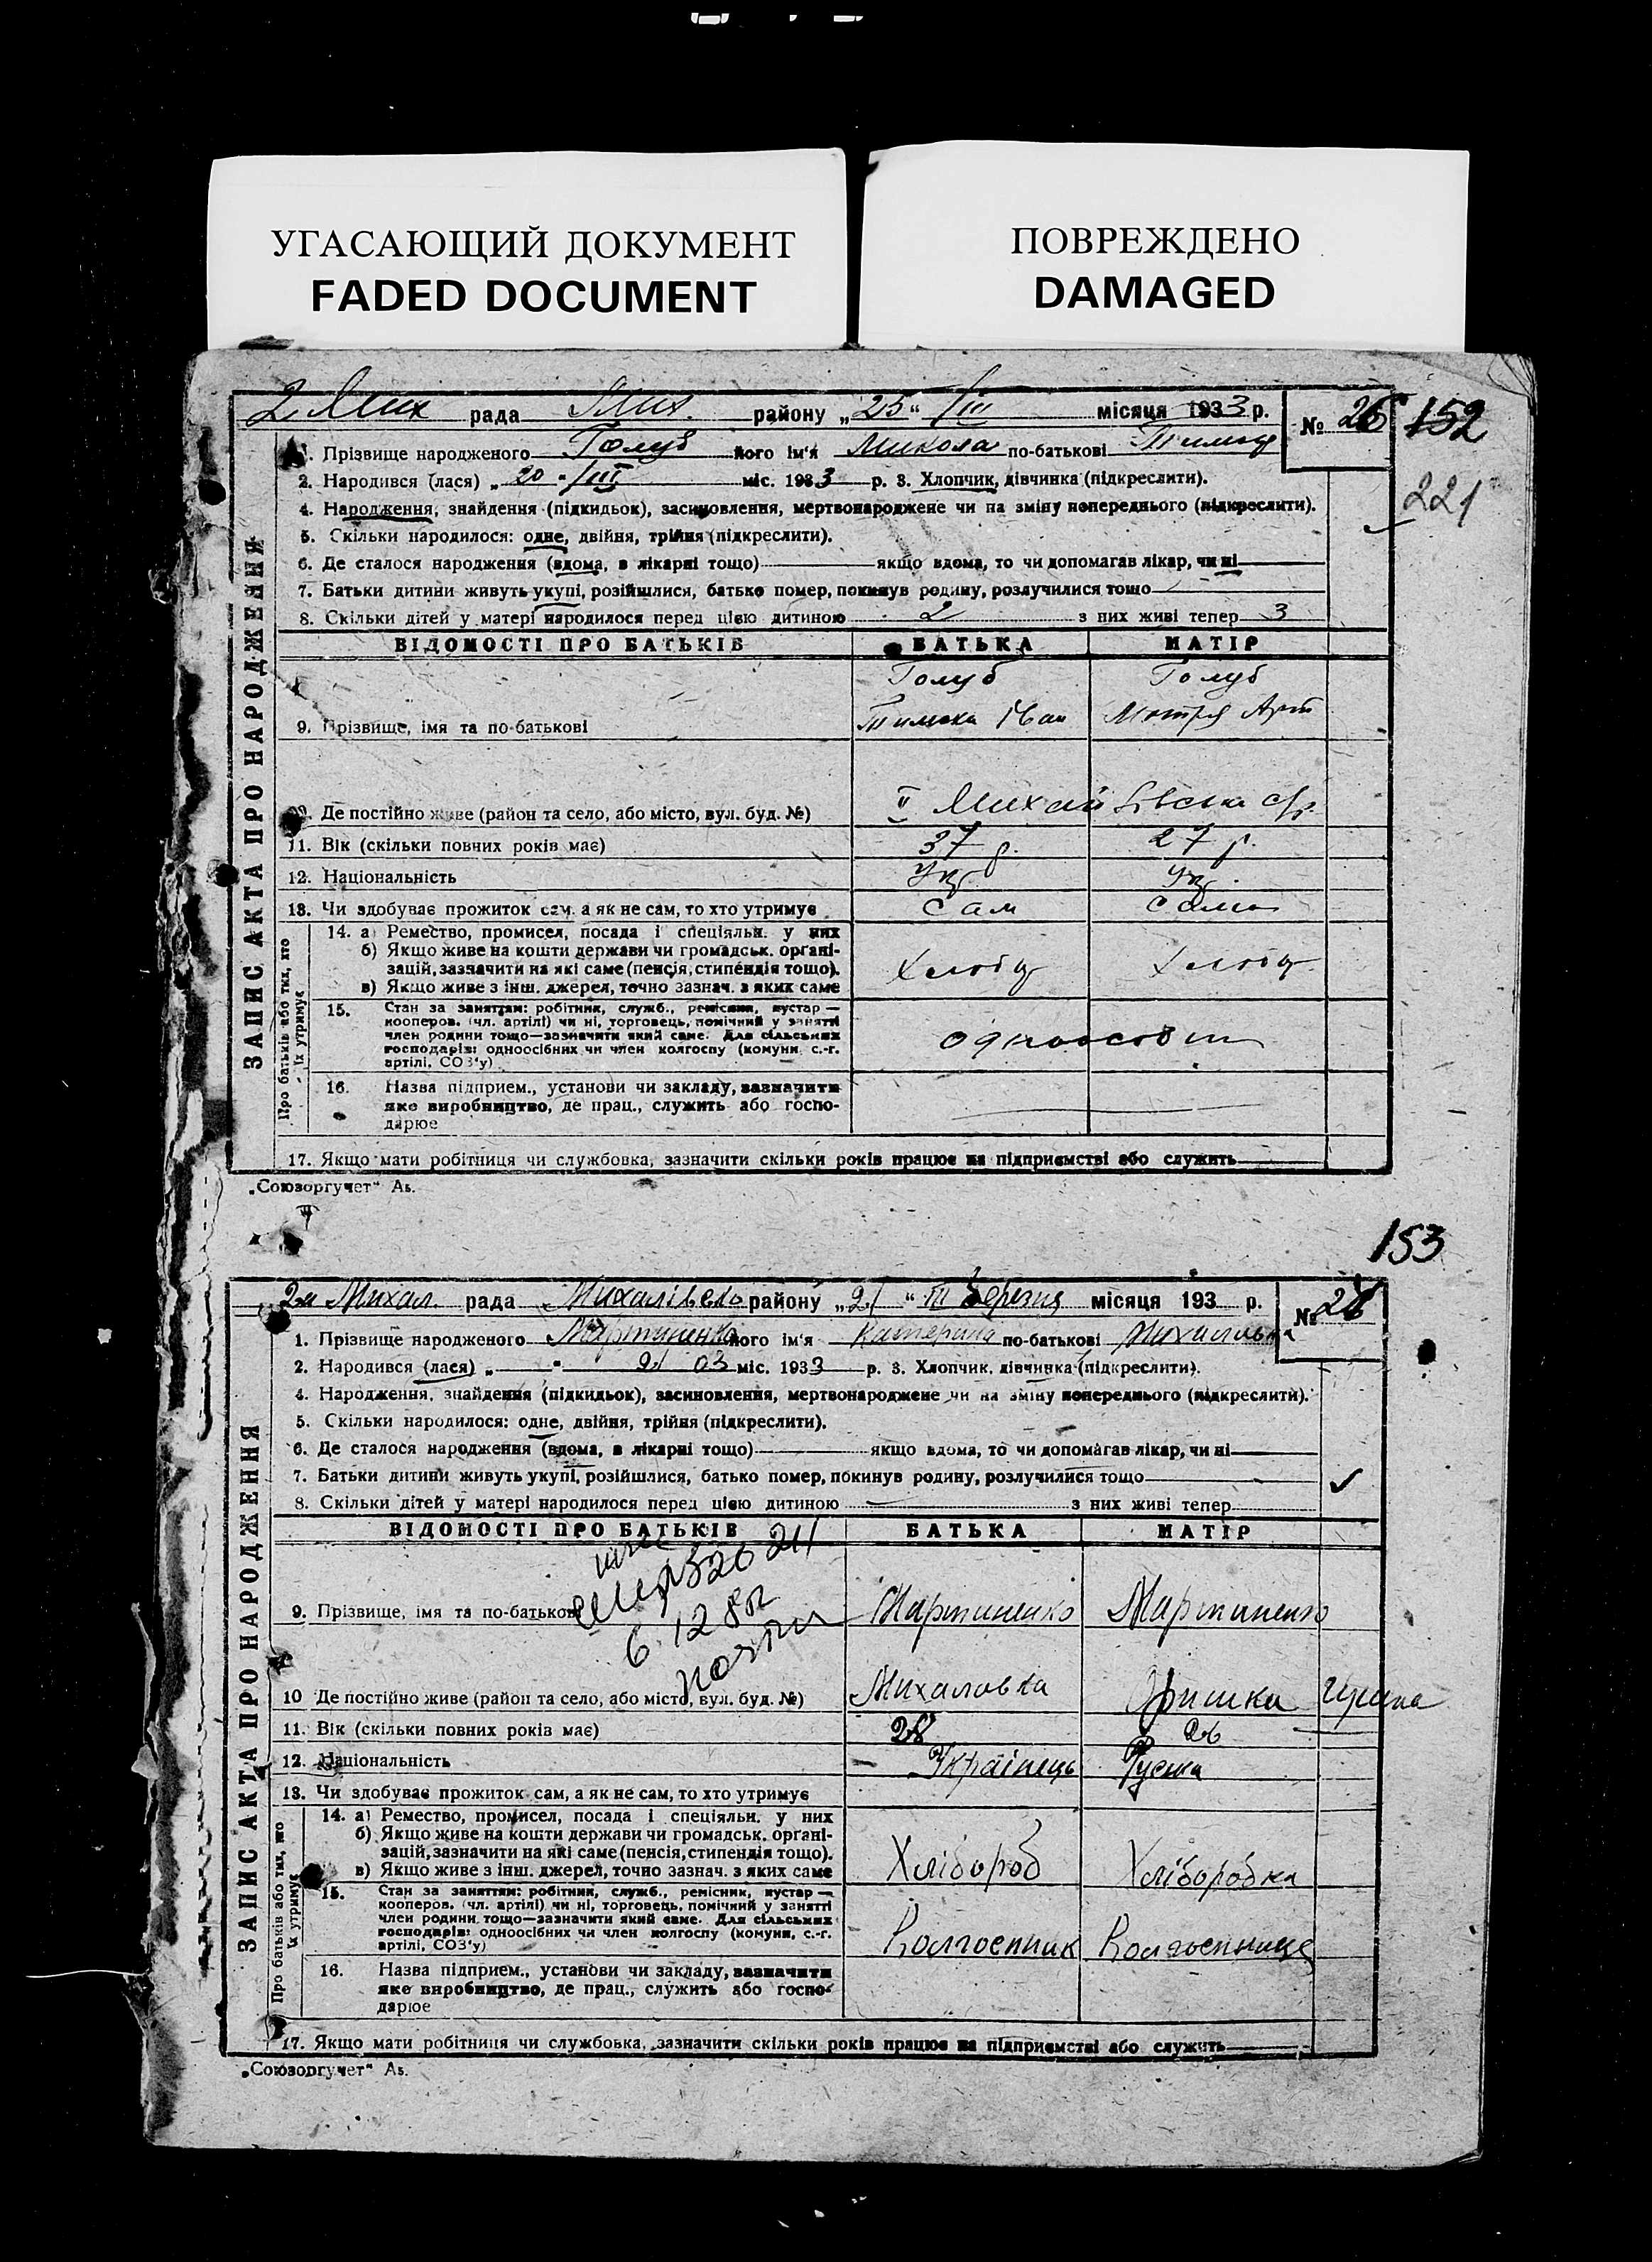 УГАСАЮЩИЙ ДОКУМЕНТ
FADED DOCUMENT
ПОВРЕЖДЕНО
DAMAGED
2 Мих рада Мих. району „25“ /III місяця 1933 р. № 26 152
221
ЗАПИС АКТА ПРО НАРОДЖЕННЯ
1. Прізвище народженого Голуб його ім'я Микола по-батькові
2. Народився (лася) „20“/III міс. 1933 р. 3. Хлопчик, дівчинка (підкреслити).
4. Народження, знайдення (підкидьок), засиновлення, мертвонароджене чи на зміну попереднього (підкреслити).
5. Скільки народилося: одне, двійня, трійня (підкреслити).
6. Де сталося народження (вдома, в лікарні тощо) якщо вдома, то чи допомагав лікар, чи ні
7. Батьки дитини живуть укупі, розійшлися, батько помер, покинув родину, розлучилися тощо
8. Скільки дітей у матері народилося перед цією дитиною 2 з них живі тепер 3
ВІДОМОСТІ ПРО БАТЬКІВ БАТЬКА МАТІР
Голуб Голуб
9. Прізвище, імя та по-батькові Тимоха Іван Мотря Арт
10. Де постійно живе (район та село, або місто, вул. буд. №) II Михайлівська с/р.
11. Вік (скільки повних років має) 37 р. 27 р.
12. Національність Укр. Укр.
13. Чи здобуває прожиток сам, а як не сам, то хто утримує сам сама
Про батьків або тих, хто їх утримує
14. а) Ремество, промисел, посада і спеціяльн. у них
б) Якщо живе на кошти держави чи громадськ. органі-
зацій, зазначити на які саме (пенсія, стипендія тощо).
в) Якщо живе з інш. джерел, точно зазнач. з яких саме
15. Стан за заняттям: робітник, служб., ремісник, кустар—
кооперов. (чл. артілі) чи ні, торговець, помічний у занятті
член родини тощо—зазначити який саме. Для сільських
господарів: одноосібних чи член колгоспу (комуни, с.-г.
артілі, СОЗ'у)
16. Назва підприєм., установи чи закладу, зазначити
яке виробництво, де прац., служить або госпо-
дарює
17. Якщо мати робітниця чи службовка, зазначити скільки років працює на підприємстві або служить
„Союзоргучет“ Аь.
153
2а Михал. рада Михалівсько району „21“ III березня місяця 193 р. №
ЗАПИС АКТА ПРО НАРОДЖЕННЯ
1. Прізвище народженого Мартиненко його ім'я Катерина по-батькові
2. Народився (лася) „ “ 21 03 міс. 1933 р. 3. Хлопчик, дівчинка (підкреслити).
4. Народження, знайдення (підкидьок), засиновлення, мертвонароджене чи на зміну попереднього (підкреслити).
5. Скільки народилося: одне, двійня, трійня (підкреслити).
6. Де сталося народження (вдома, в лікарні тощо) якщо вдома, то чи допомагав лікар, чи ні
7. Батьки дитини живуть укупі, розійшлися, батько помер, покинув родину, розлучилися тощо
8. Скільки дітей у матері народилося перед цією дитиною з них живі тепер
ВІДОМОСТІ ПРО БАТЬКІВ БАТЬКА МАТІР
9. Прізвище, імя та по-батькові Мартиненко Мартиненко
10 Де постійно живе (район та село, або місто, вул. буд. №) Михаловка Оришка
11. Вік (скільки повних років має) 28 26
12. Національність Українець Руська
13. Чи здобуває прожиток сам, а як не сам, то хто утримує
Про батьків або тих, хто їх утримує
14. а) Ремество, промисел, посада і спеціяльн. у них
б) Якщо живе на кошти держави чи громадськ. органі-
зацій, зазначити на які саме (пенсія, стипендія тощо).
в) Якщо живе з інш. джерел, точно зазнач. з яких саме
Хлібороб Хліборобка
15. Стан за заняттям: робітник, служб., ремісник, кустар—
кооперов. (чл. артілі) чи ні, торговець, помічний у занятті
член родини тощо—зазначити який саме. Для сільських
господарів: одноосібних чи член колгоспу (комуни, с.-г.
артілі, СОЗ'у)
Колгоспник
16. Назва підприєм., установи чи закладу, зазначити
яке виробництво, де прац., служить або госпо-
дарює
17. Якщо мати робітниця чи службовка, зазначити скільки років працює на підприємстві або служить
„Союзоргучет“ Аь.